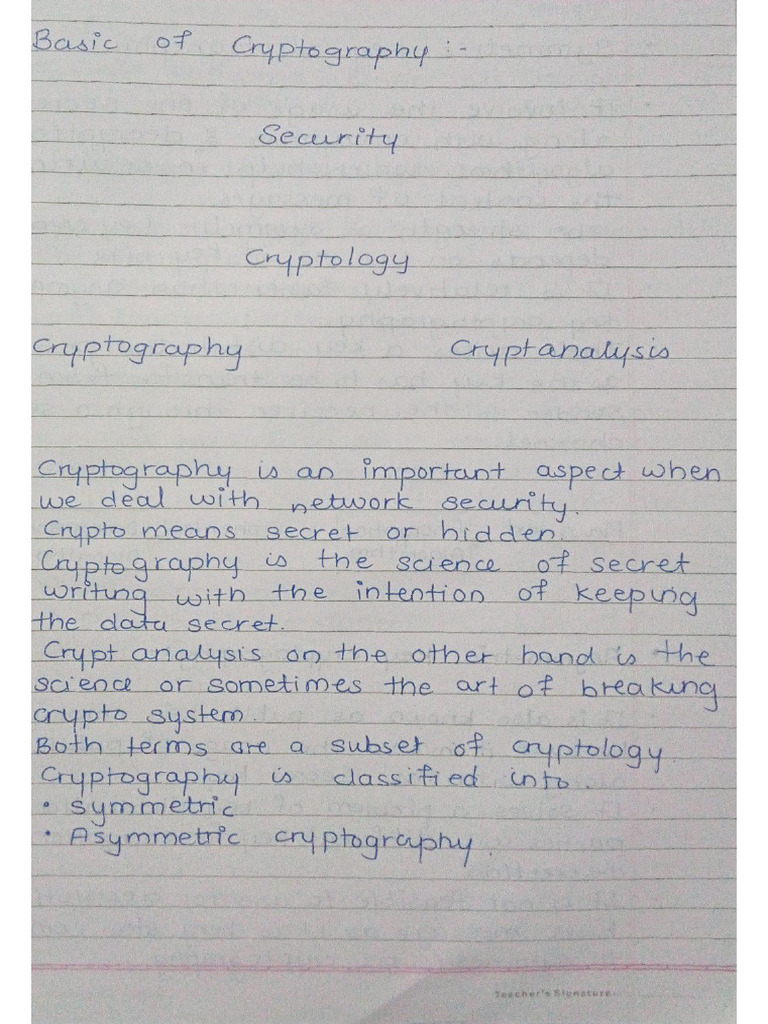 Basic of Cryptography :-
Security
Cryptology
Cryptography Cryptanalysis
Cryptography is an important aspect when
we deal with network security.
Crypto means secret or hidden.
Cryptography is the science of secret
writing with the intention of keeping
the data secret.
Crypt analysis on the other hand is the
science or sometimes the art of breaking
crypto system.
Both terms are a subset of cryptology.
Cryptography is classified into.
• Symmetric
• Asymmetric cryptography.
Teacher's Signature